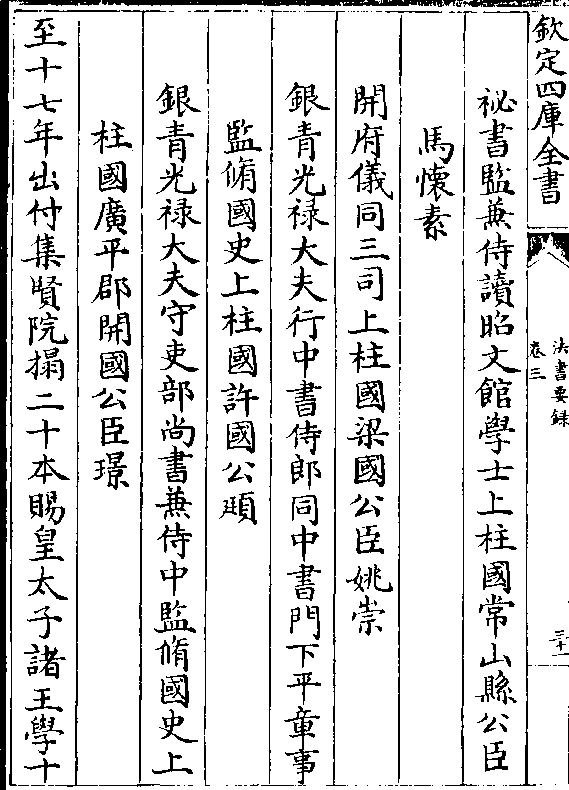 欽定四庫全書
法書要録
卷三
三十一
祕書監兼侍讀昭文館學士上柱國常山縣公臣
馬懷素
開府儀同三司上柱國梁國公臣姚崇
銀青光禄大夫行中書侍郎同中書門下平章事
監脩國史上柱國許國公頲
銀青光禄大夫守吏部尚書兼侍中監脩國史上
柱國廣平郡開國公臣璟
至十七年出付集賢院搨二十本賜皇太子諸王學十